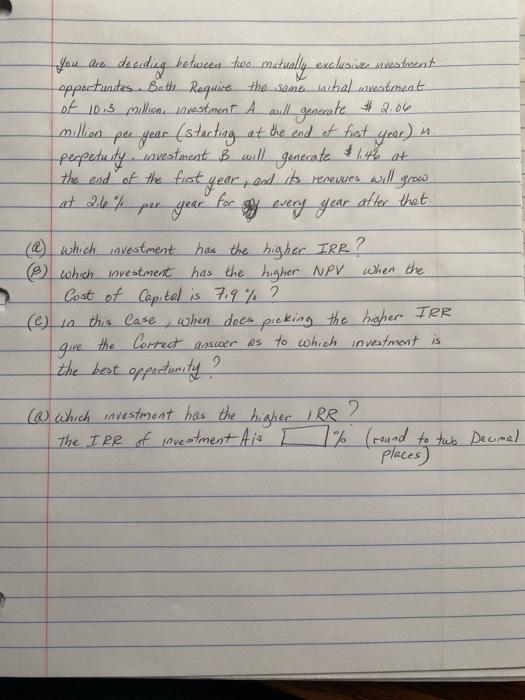 You are deciding between two mutually exclusive nvestment
opportunites. Both Require the same initial investment
of 10.3 million. investment A will generate $ 2.06
million per year (starting at the end of first year) in
perpetuity. investment B will generate $ 1.46 at
the end of the first year, and its reneuves will grow
at 2.6 % per year for every year after that.
(a) which investment has the higher IRR?
(B) which investment has the higher NPV when the
Cost of Capital is 7.9 % ?
(c) in this Case, when does picking the higher IRR
give the Correct answer as to which investment is
the best opportunity ?
(a) which investment has the higher IRR ?
The IRR of investment A is % (round to two Decimal
places)